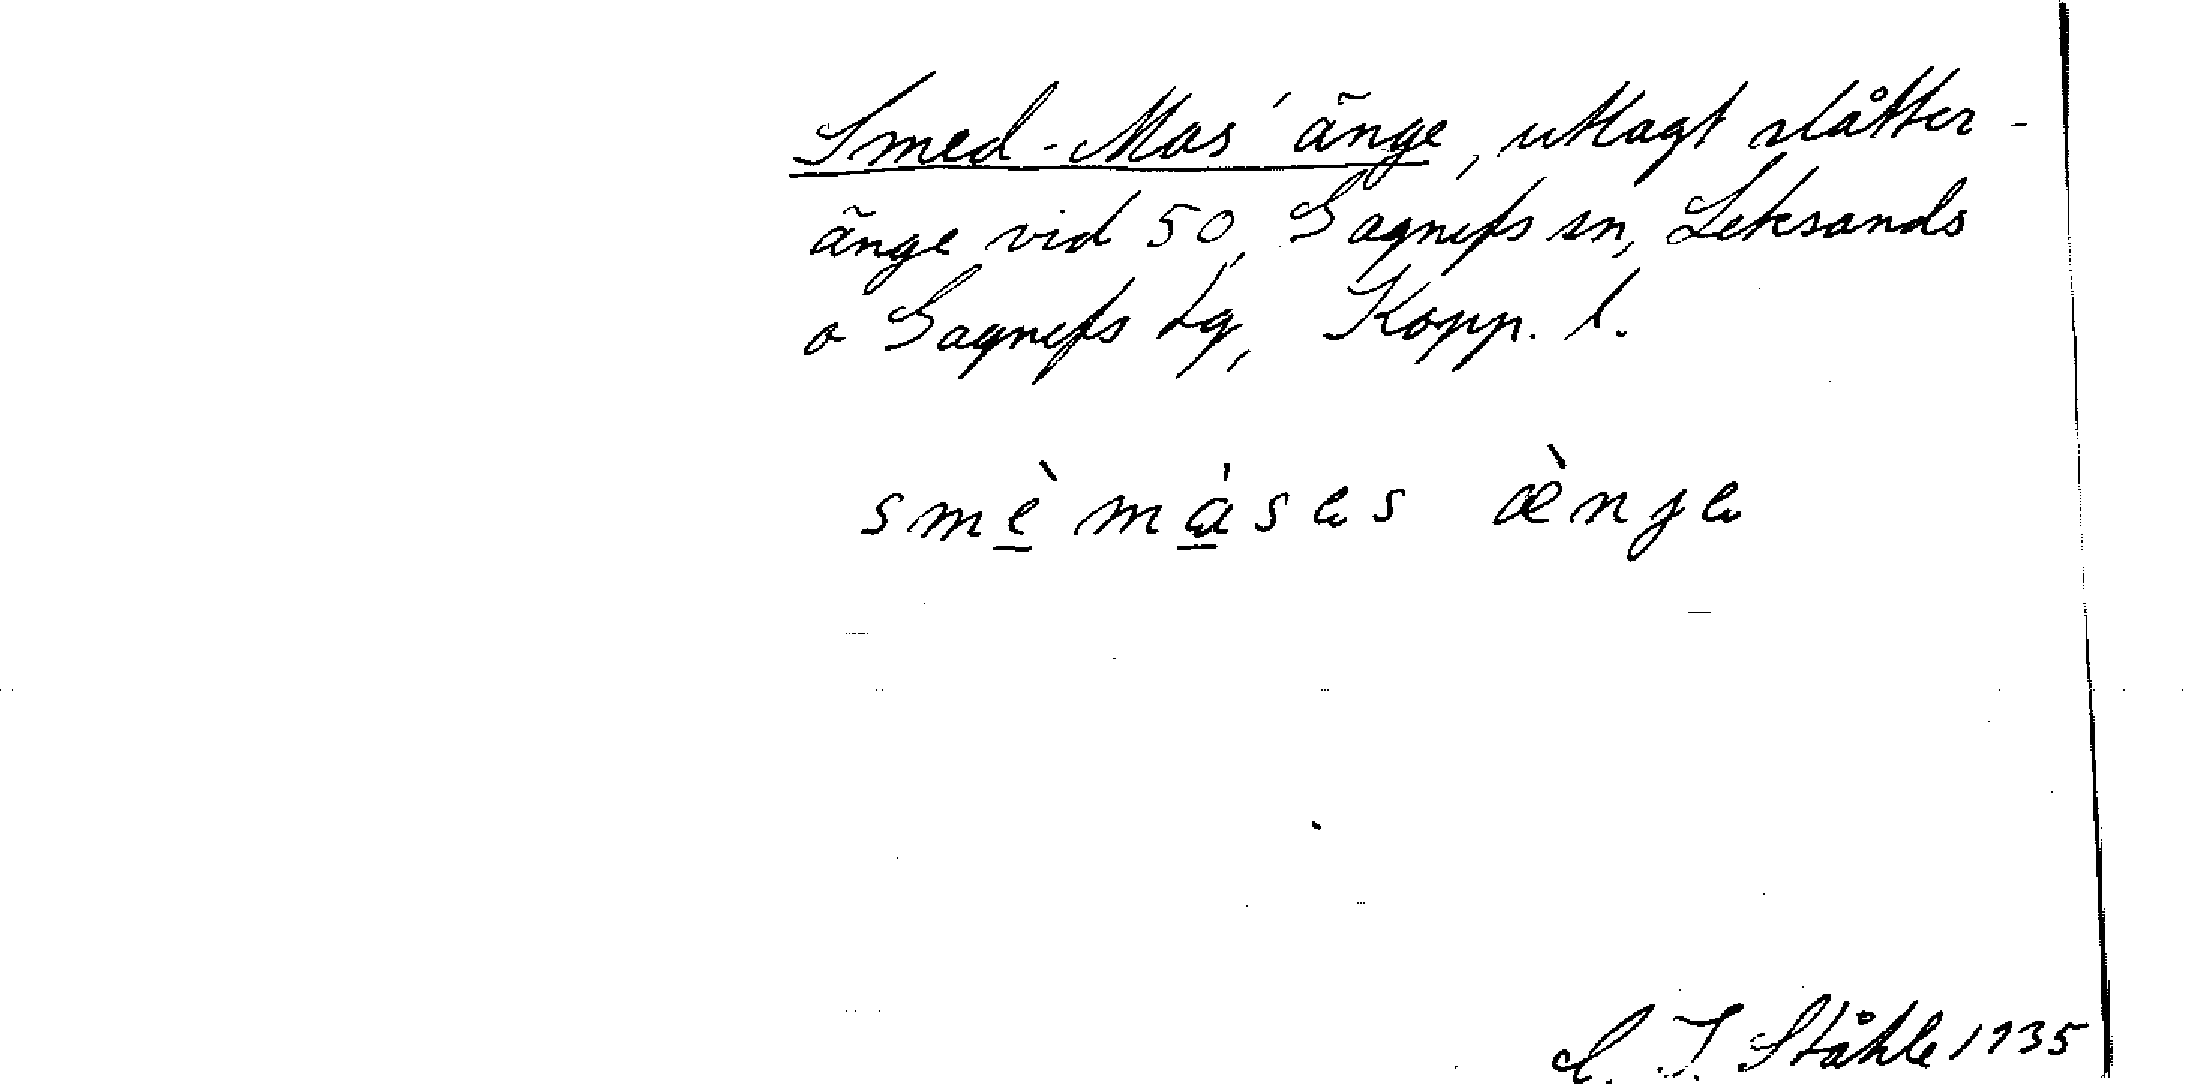 Smed-Mas' änge, utlagt slåtter-
änge vid 50, Gagnefs sn, Leksands
o Gagnefs tg, Kopp. l.
smè̱ má̱ses æ̀nje
C. I. Ståhle 1935